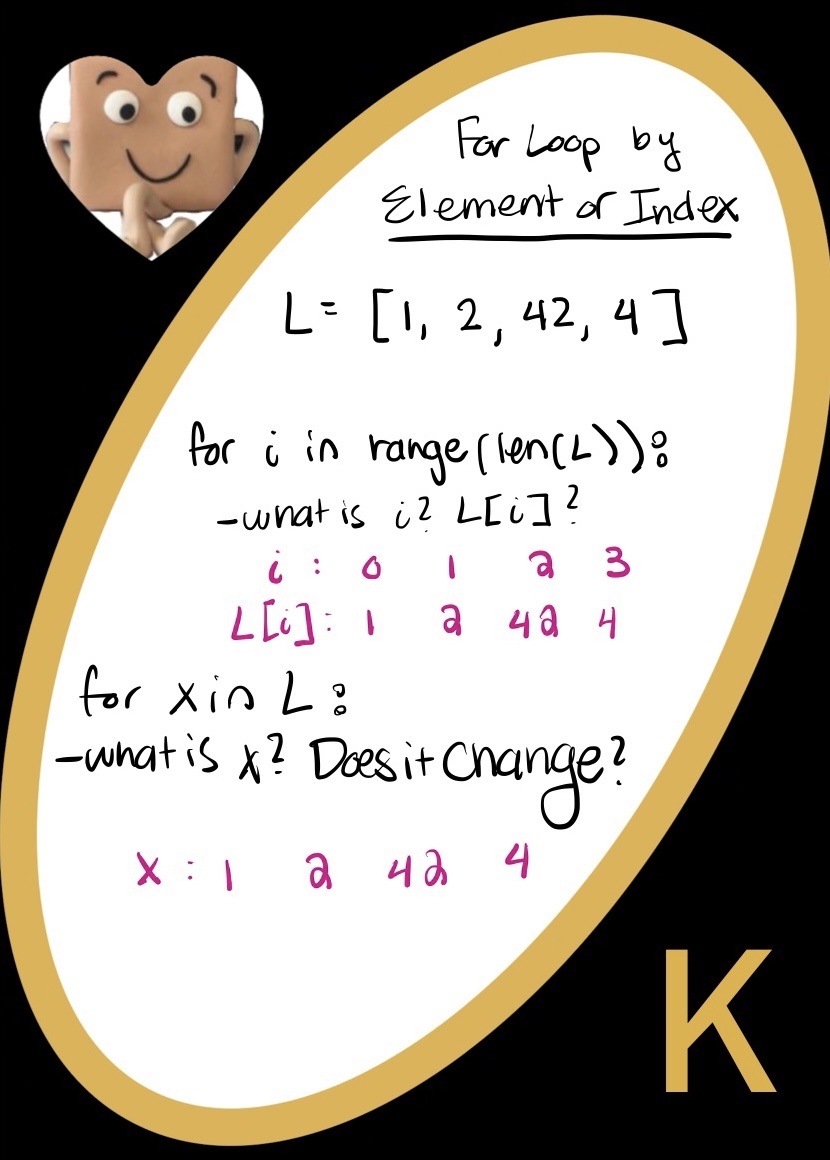 For Loop by
Element or Index
L= [1, 2, 42, 4]
for i in range(len(L)):
-what is i? L[i]?
i : 0 1 2 3
L[i]: 1 2 42 4
for x in L:
-what is x? Does it Change?
x : 1 2 42 4
K